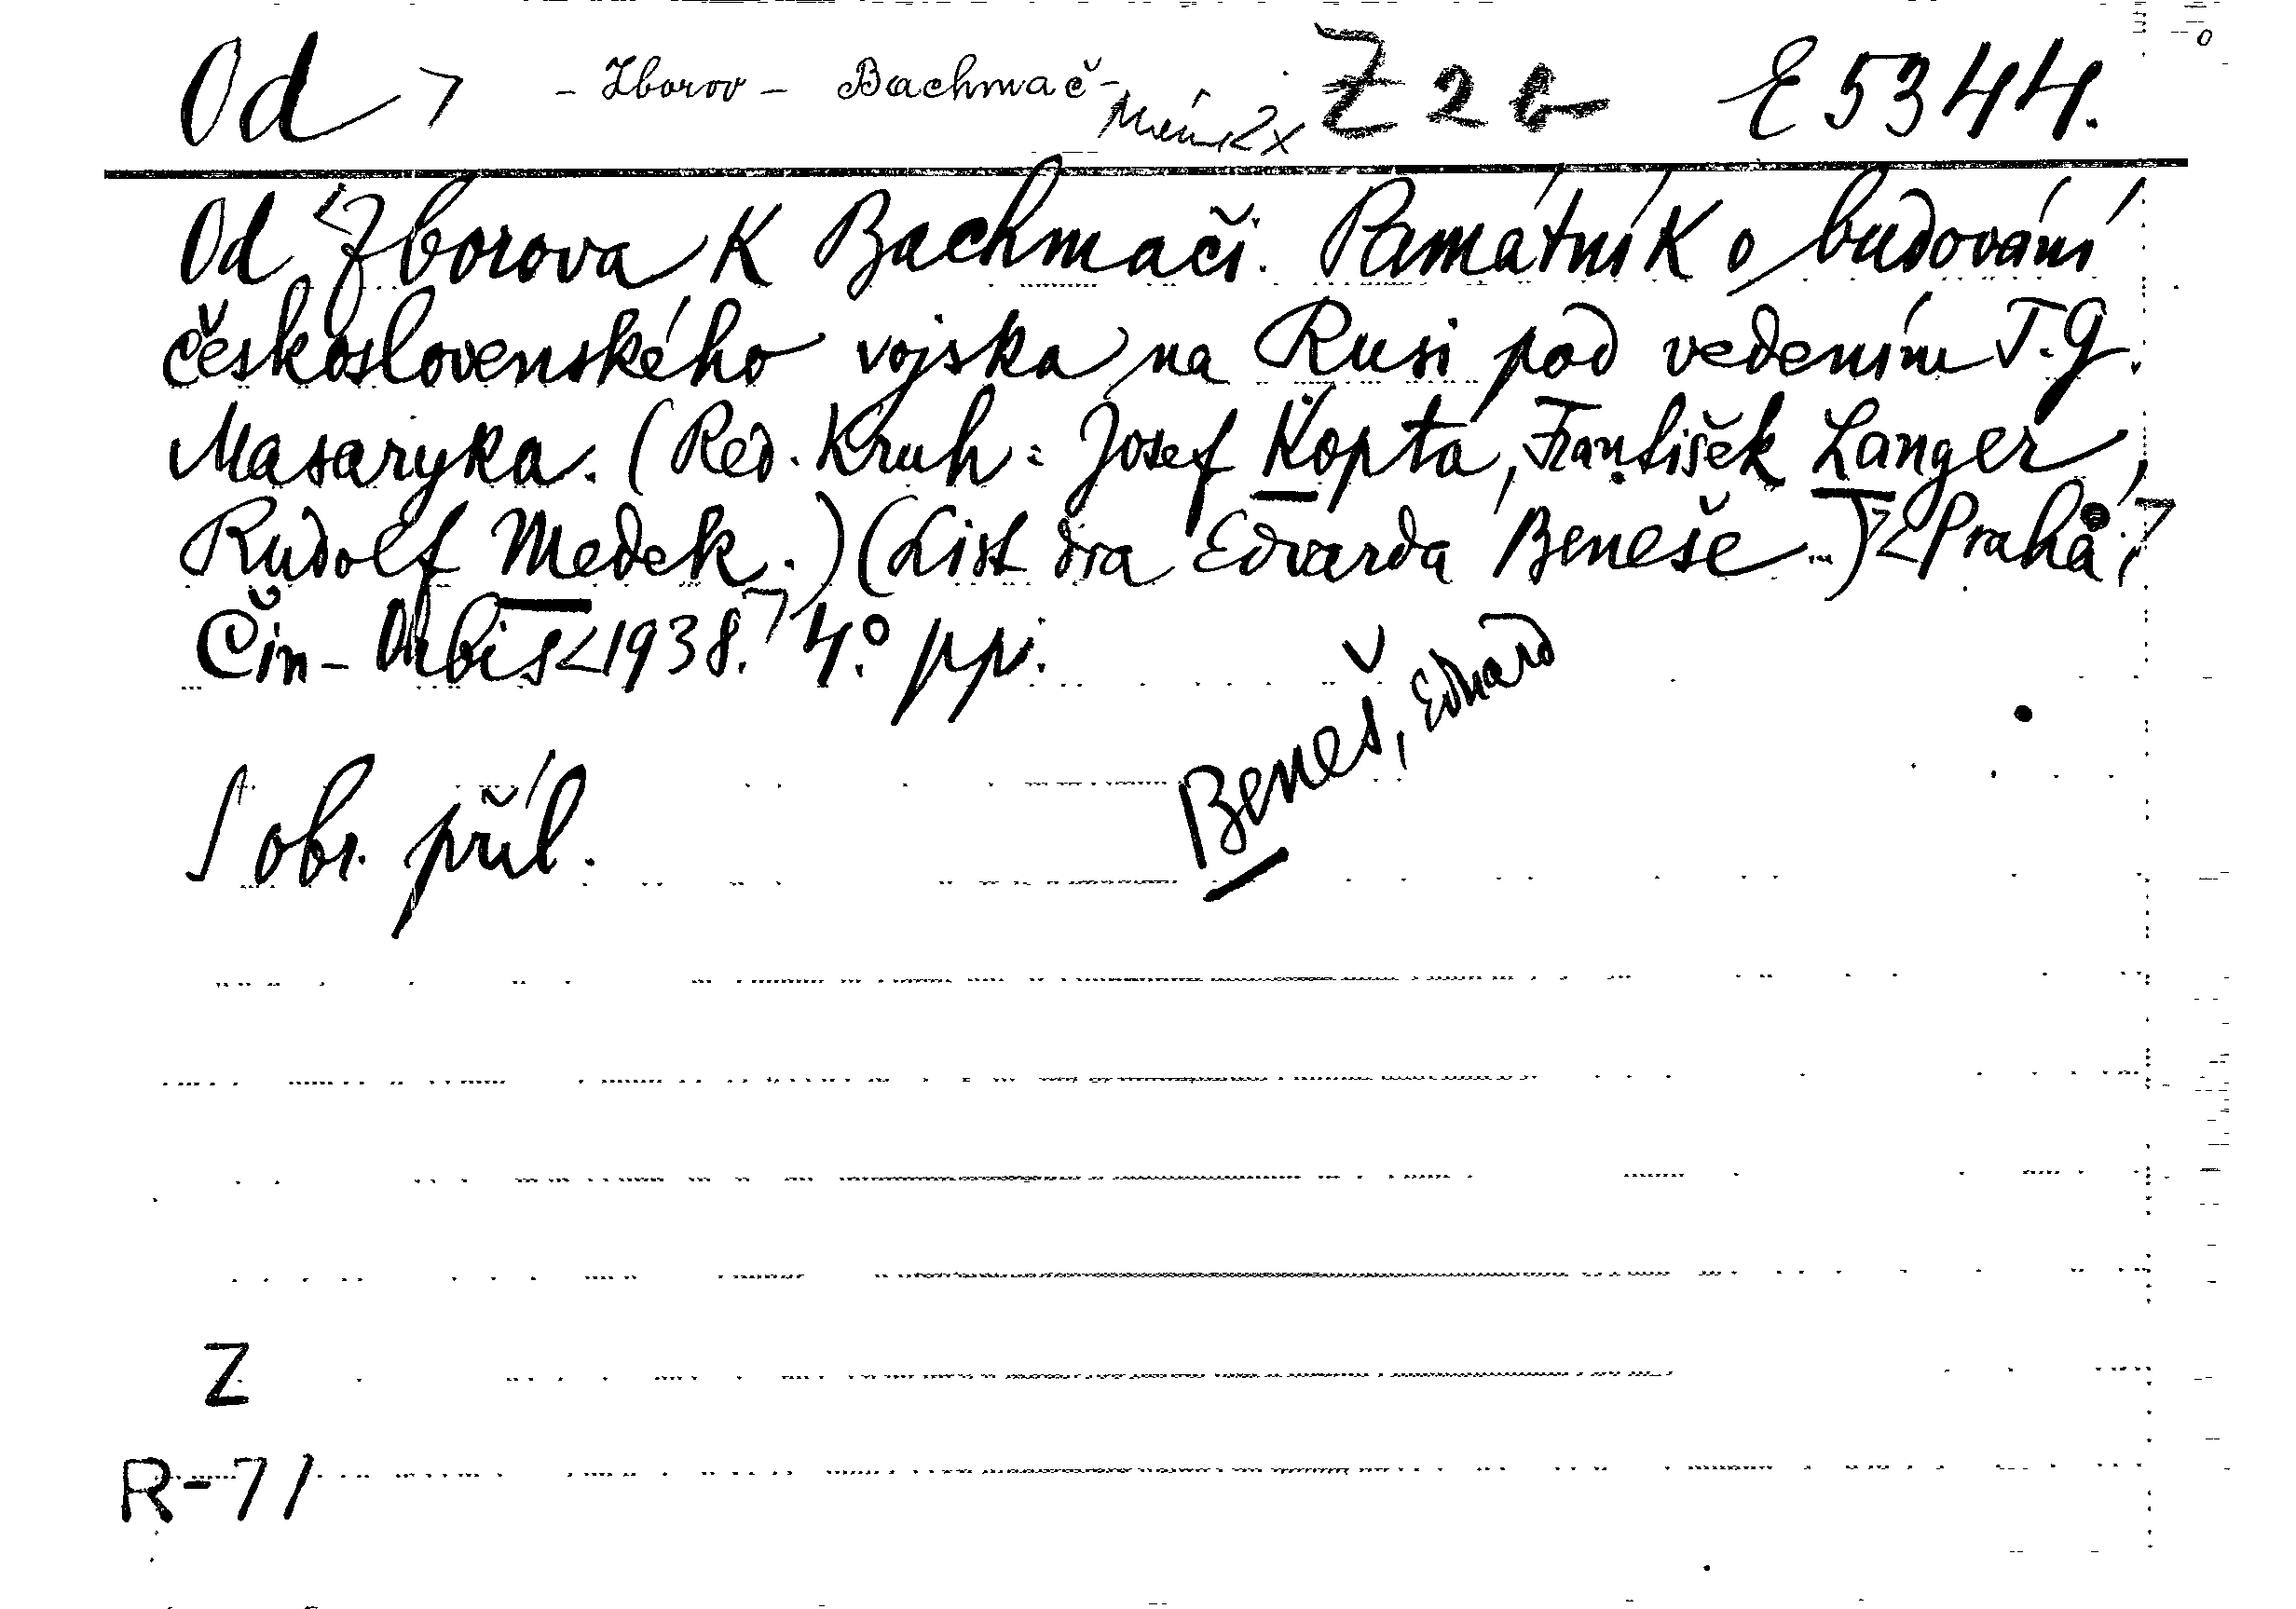 Od > - Zborov - Bachmač - Z 2 b E 5344.
Od <Zborova k Bachmači. Památník o budování
československého vojska na Rusi pod vedením T. G.
Masaryka. (Red. Kruh: Josef Kopta, František Langer,
Rudolf Medek.) (List dra Edvarda Beneše ...)> <Praha,>
Čin - Orbis <1938.> 4.° pp.
Beneš, Edvard
S obr. příl.
Z
R-71